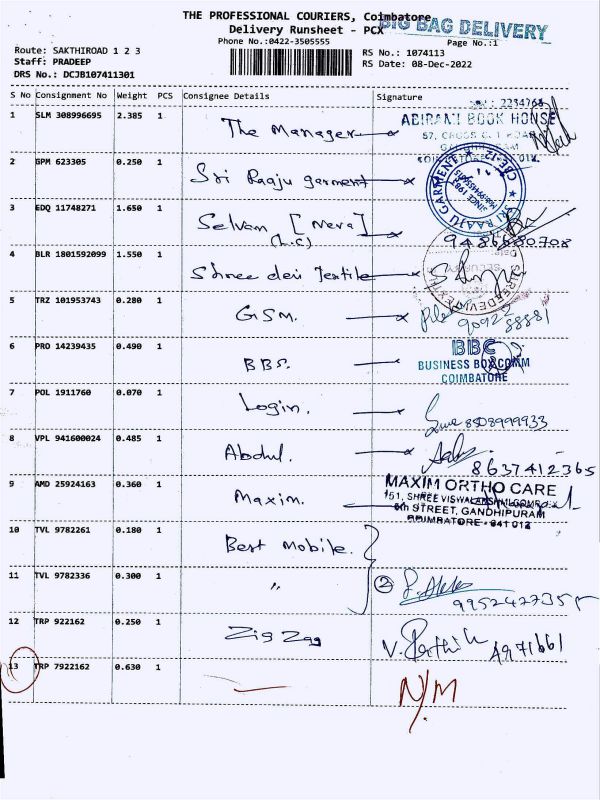 THE PROFESSIONAL COURIERS, Coimbatore
BIG BAG DELIVERY
Delivery Runsheet - PCX
Phone No.:0422-3505555
Page No.:1
Route: SAKTHIROAD 1 2 3
RS No.: 1074113
Staff: PRADEEP
RS Date: 08-Dec-2022
DRS No.: DCJB107411301
S No Consignment No Weight PCS Consignee Details Signature
1 SLM 308996695 2.385 1 The Manager
2234768
ABIRAMI BOOK HOUSE
57, CROSS CUT ROAD
2 GPM 623305 0.250 1 Sri Raaju garment
SRI RAAJU GARMENT CBE-12
SINCE 1987
3 EDQ 11748271 1.650 1 Selvam [Meera]
(L.C)
9486680708
4 BLR 1801592099 1.550 1 Shree devi Textile
SECURITY
5 TRZ 101953743 0.280 1 GSM.
90922
88881
6 PRO 14239435 0.490 1 BBS.
BBC
BUSINESS BOX COMM
COIMBATORE
7 POL 1911760 0.070 1 Login.
8508999933
8 VPL 941600024 0.485 1 Abdul.
8637412365
9 AMD 25924163 0.360 1 Maxim.
MAXIM ORTHO CARE
151, SHREE VISWALAKSHMI COMPLEX
6th STREET, GANDHIPURAM
COIMBATORE - 641 012
10 TVL 9782261 0.180 1 Best Mobile.
11 TVL 9782336 0.300 1 "
2
12 TRP 922162 0.250 1 Zig Zag
V. Parthi
13 TRP 7922162 0.630 1
N/M